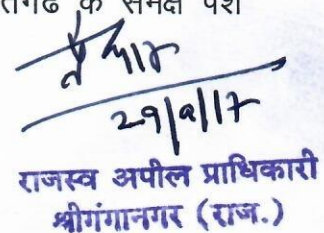 के समक्ष पेश
29/9/17
राजस्व अपील प्राधिकारी
श्रीगंगानगर (राज.)